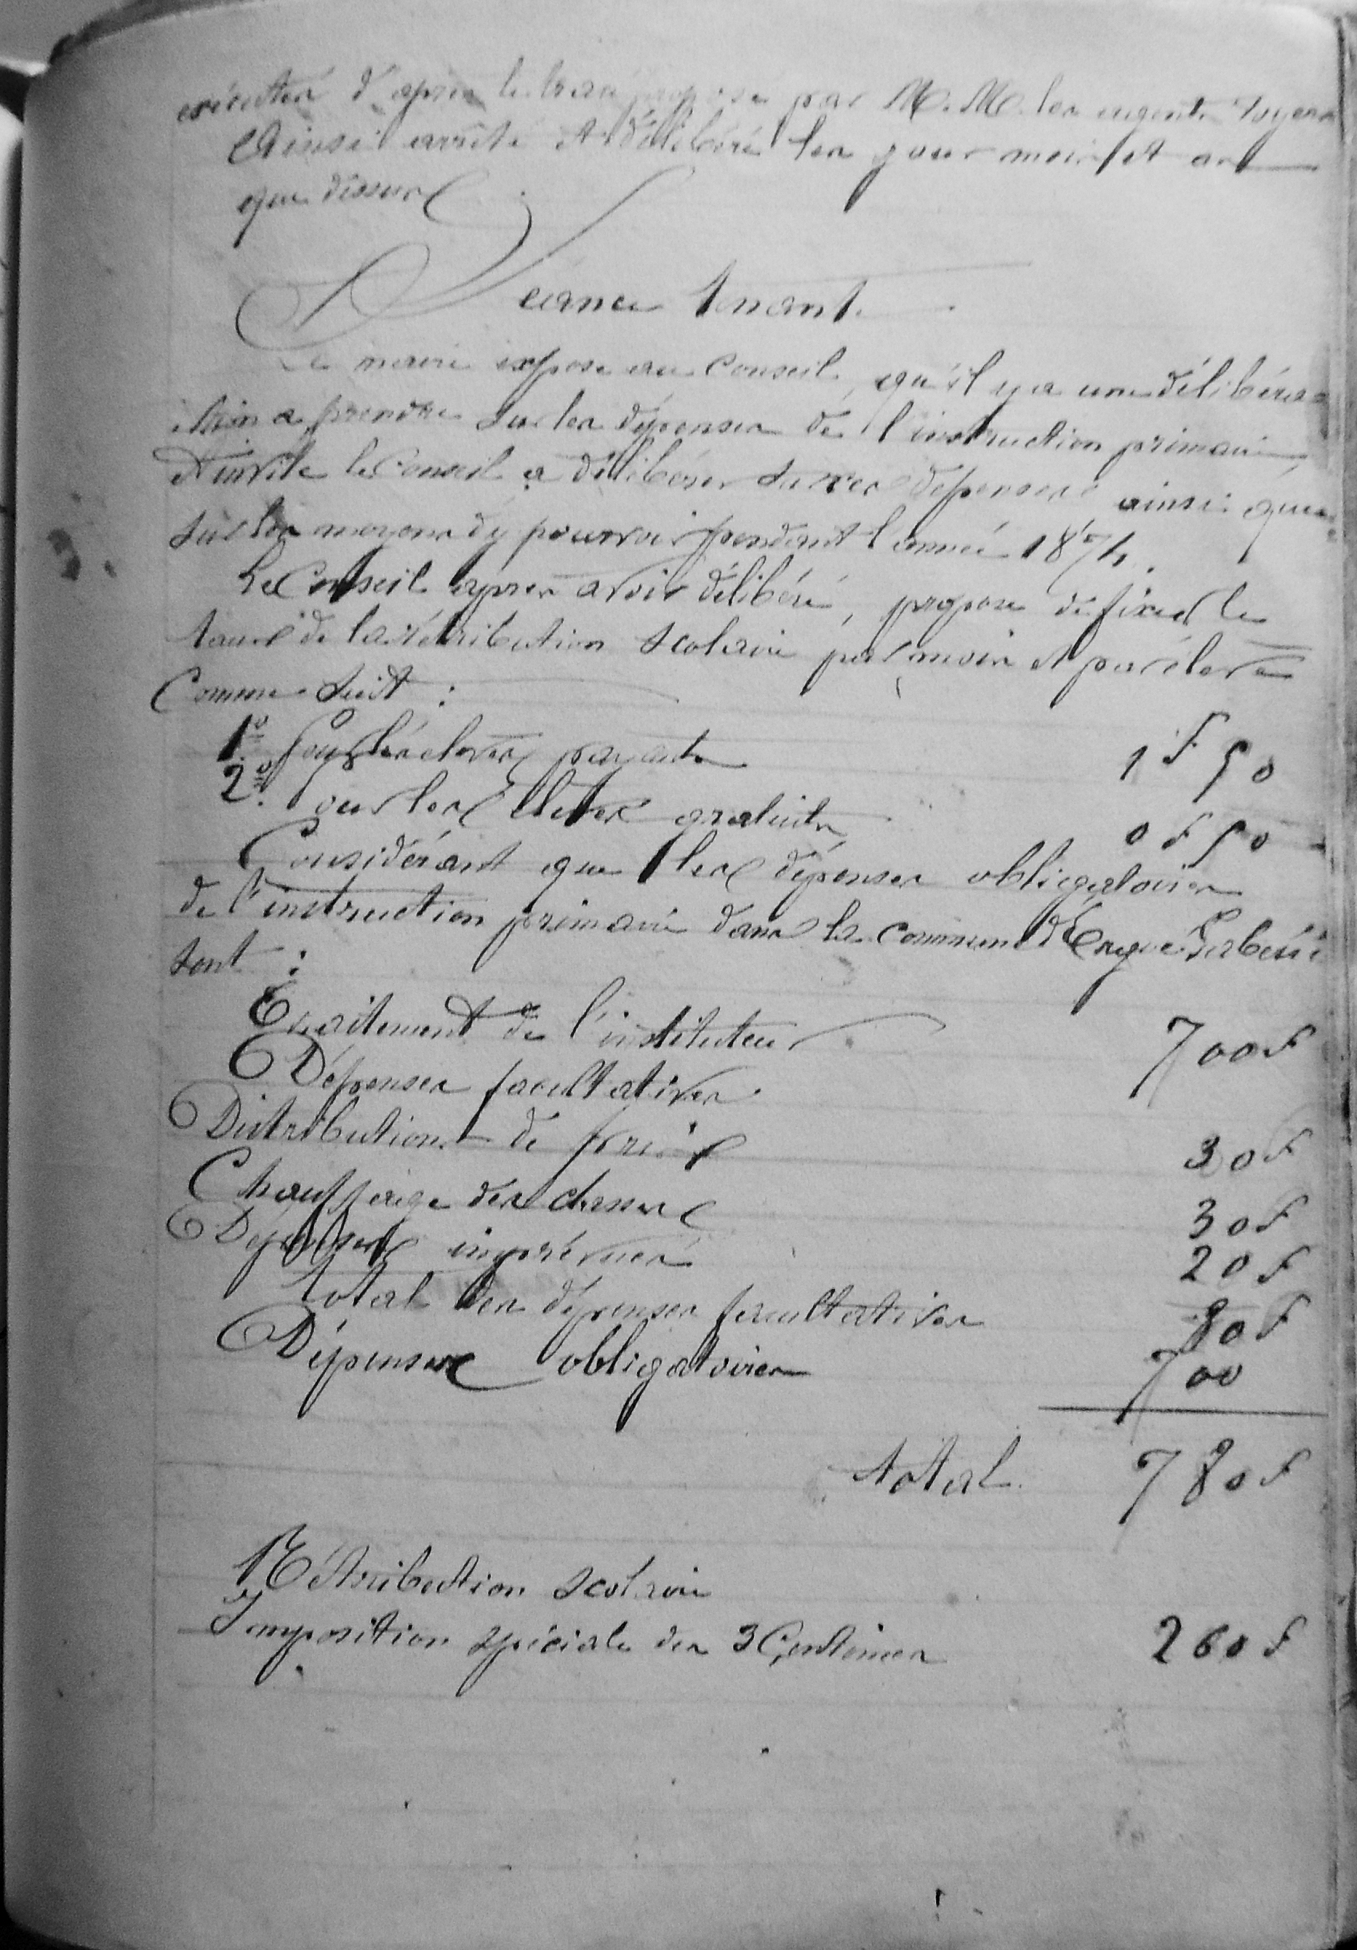 exécuter d'après le tracé proposé par M. M. les agents voyers
Ainsi arrêté et délibéré les jour mois et an
que dessus
Séance tenant
Le maire expose au Conseil, qu'il y a une délibéra
tion a prendre sur les dépenses de l'instruction primaire,
et invite le Conseil a délibérer sur ces dépenses ainsi que
sur les moyens d'y pourvoir pendant l'année 1874.
Le Conseil après avoir délibéré, propose de fixer le
taux de la rétribution scolaire par mois et par élève
Comme suit :
1º Pour les élèves payants 1 F 50
2º. Pour les élèves gratuits 0 F 50
Considérant que les dépenses obligatoires
de l'instruction primaire dans la commune
sont :
Traitement de l'instituteur 700 F
Dépenses facultatives
Distribution de prix 30 F
Chauffage des classes 30 F
Dépenses imprévues 20 F
total des dépenses facultatives 80 F
Dépenses obligatoires 700
total 780 F
Rétribution scolaire
Imposition spéciale des 3 Centimes 260 F